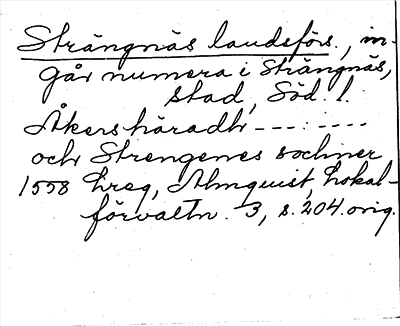 Strängnäs landsförs., in-
går numera i Strängnäs,
stad, Söd. l.
Åkers häradh ---:----
och Strengenes sochner
1558 hreg, Almquist, Lokal-
förvaltn. 3, s. 204. orig.